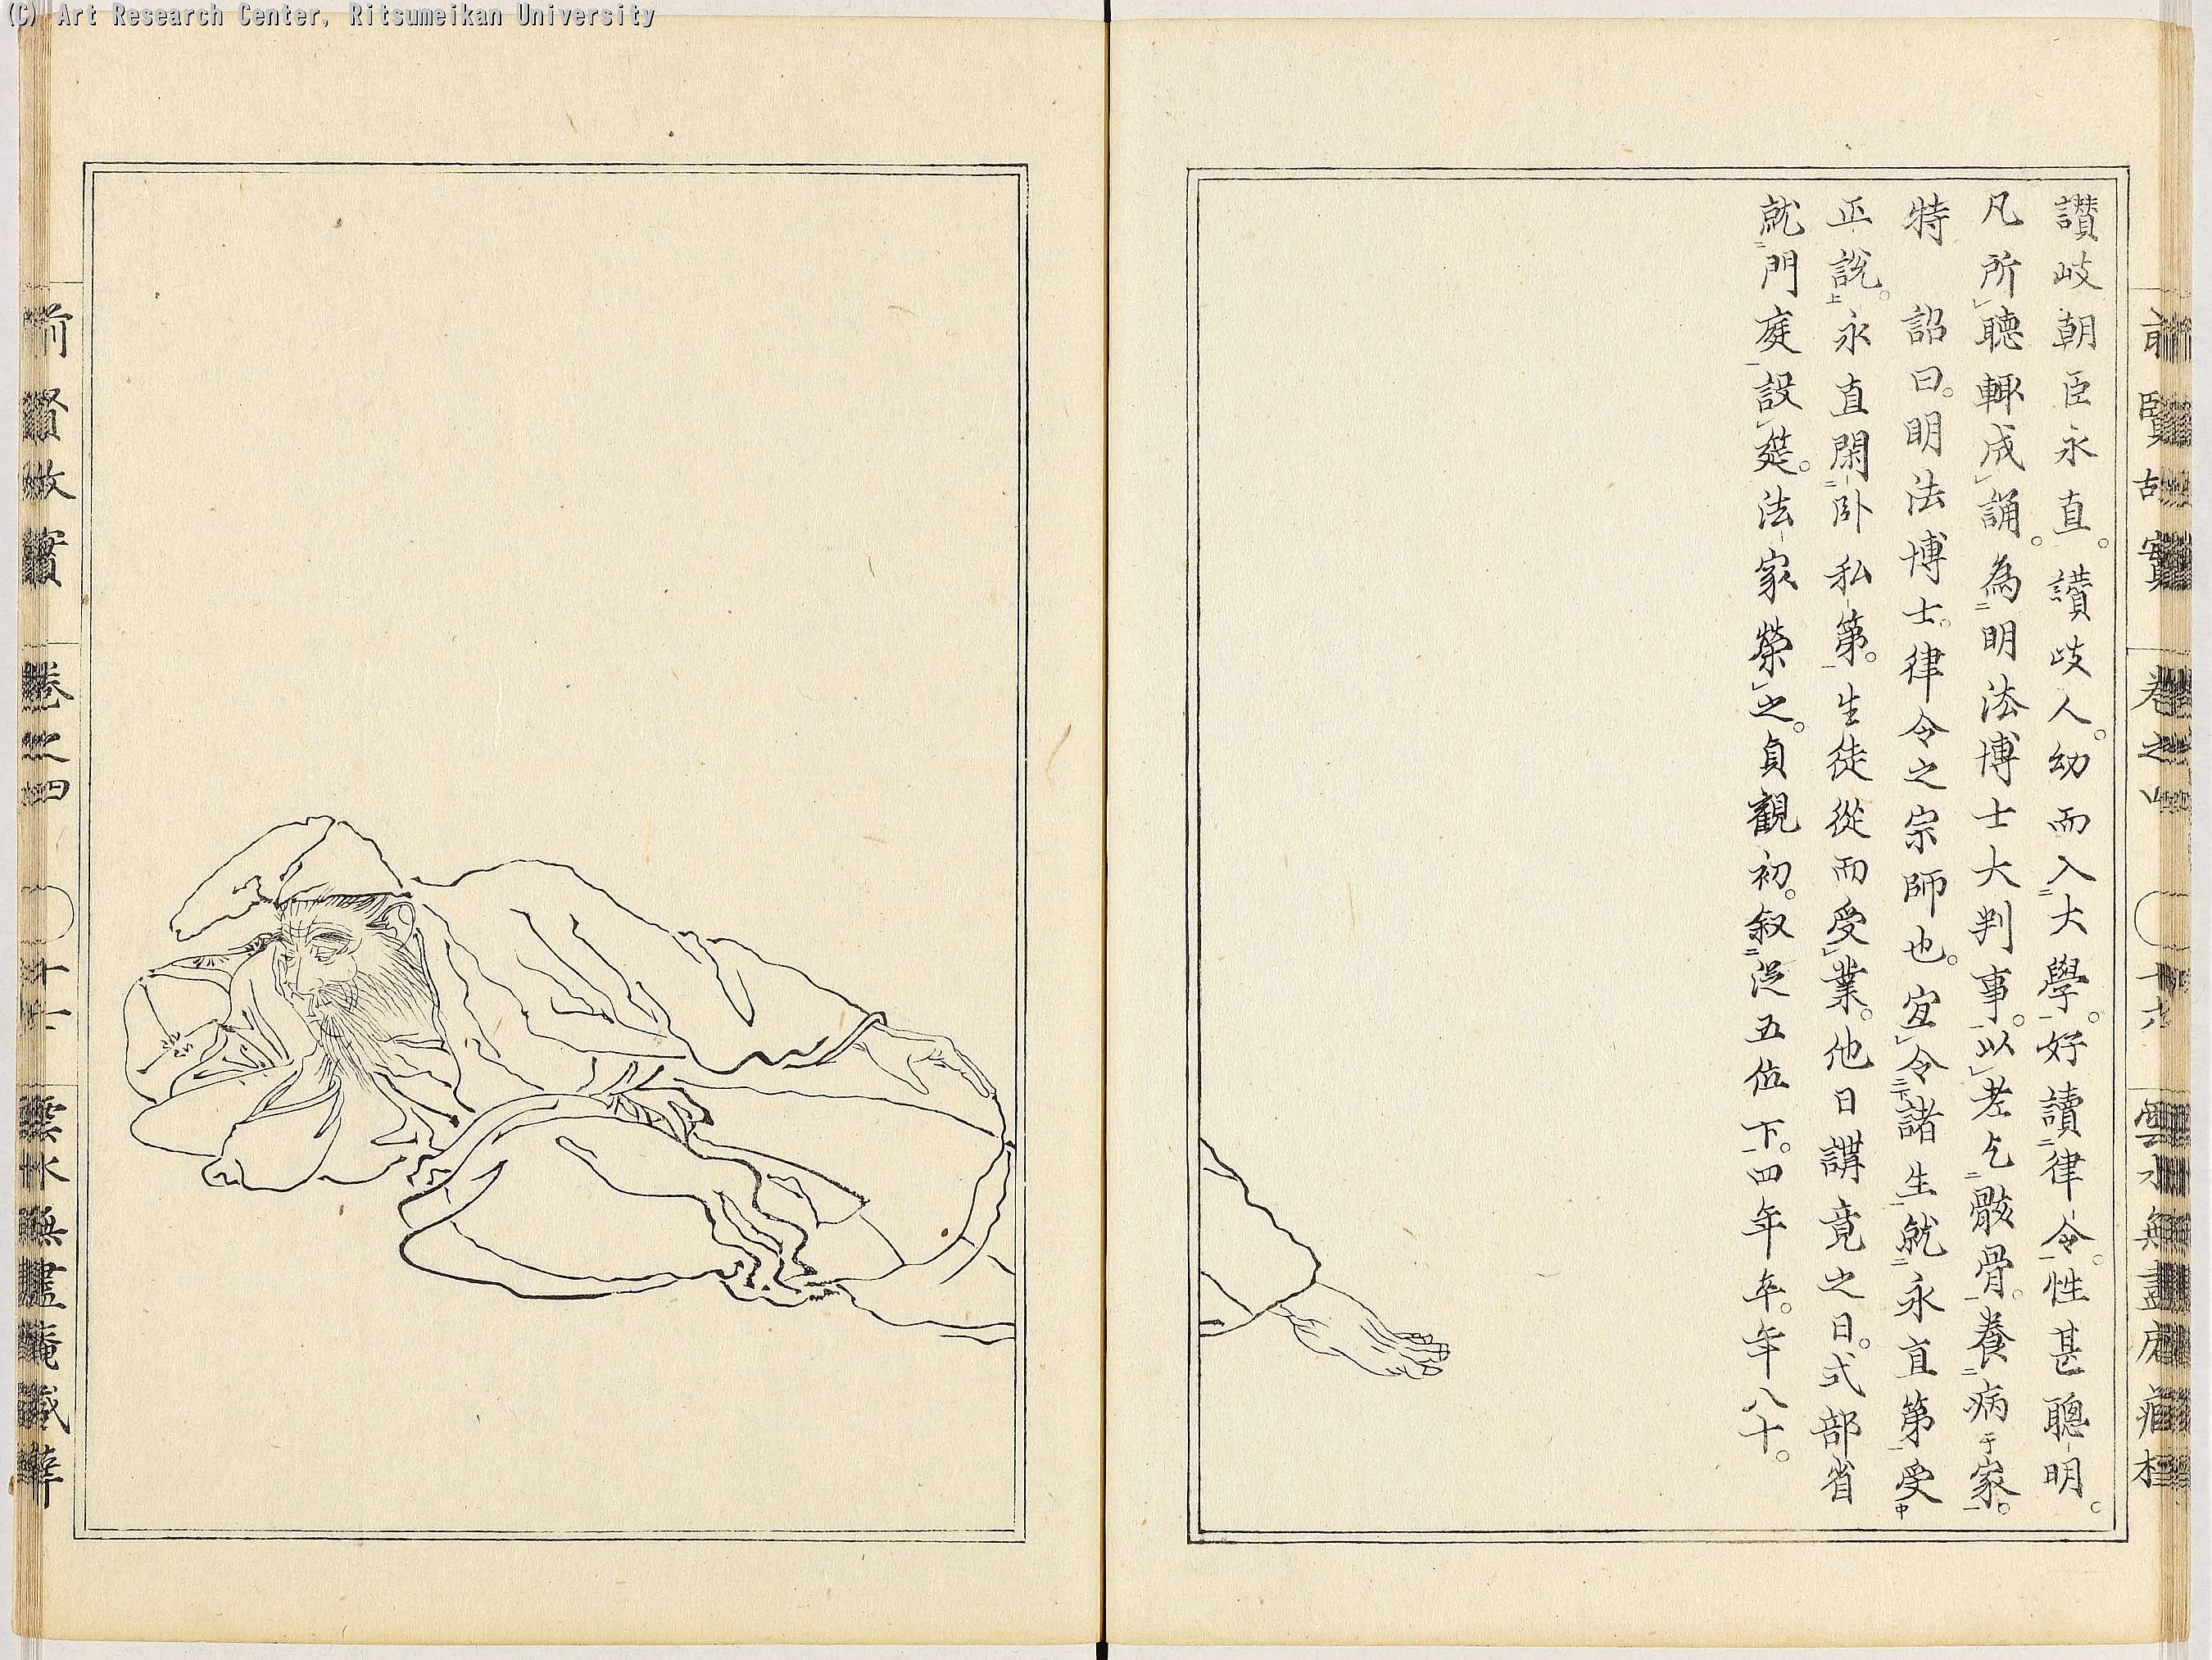 (C) Art Research Center, Ritsumeikan University
讃岐朝臣永直。讃岐人。幼而入大學。好讀律令。性甚聰明。
凡所聽輙成誦。為明法博士大判事。以老乞骸骨。養病于家。
特 詔曰。明法博士。律令之宗師也。宜令諸生就永直第受
正説。永直閑臥私第。生徒從而受業。他日講竟之日。式部省
就門庭設筵。法家榮之。貞觀初。叙從五位下。四年卒。年八十。
前賢故實 卷之四 十六 雲水無盡庵
前賢故實 卷之四 十七 雲水無盡庵藏